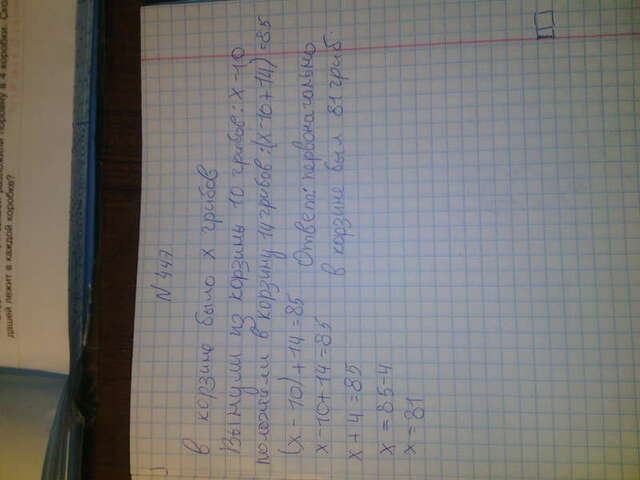 разложили поровну в 4 коробки. Ско
дашей лежит в каждой коробке?
N 447
В корзине было x грибов
Вынули из корзины 10 грибов: x-10
положили в корзину 14 грибов: (x-10+14)=85
(x-10)+14=85
x-10+14=85
x+4=85
x=85-4
x=81
Ответ: первоначально
в корзине был 81 гриб.